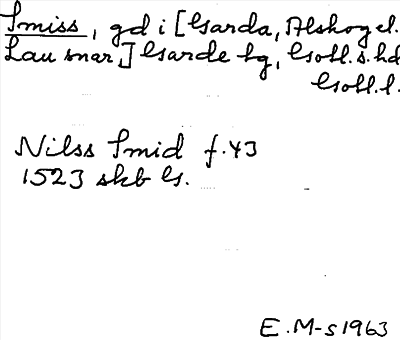 Smiss, gd i [Garda, Alskog el.
Lau snar,] Garde tg, Gotl. s. hd
Gotl. l.
Nilss Smid f. 43
1523 skb G.
E. M-s 1963